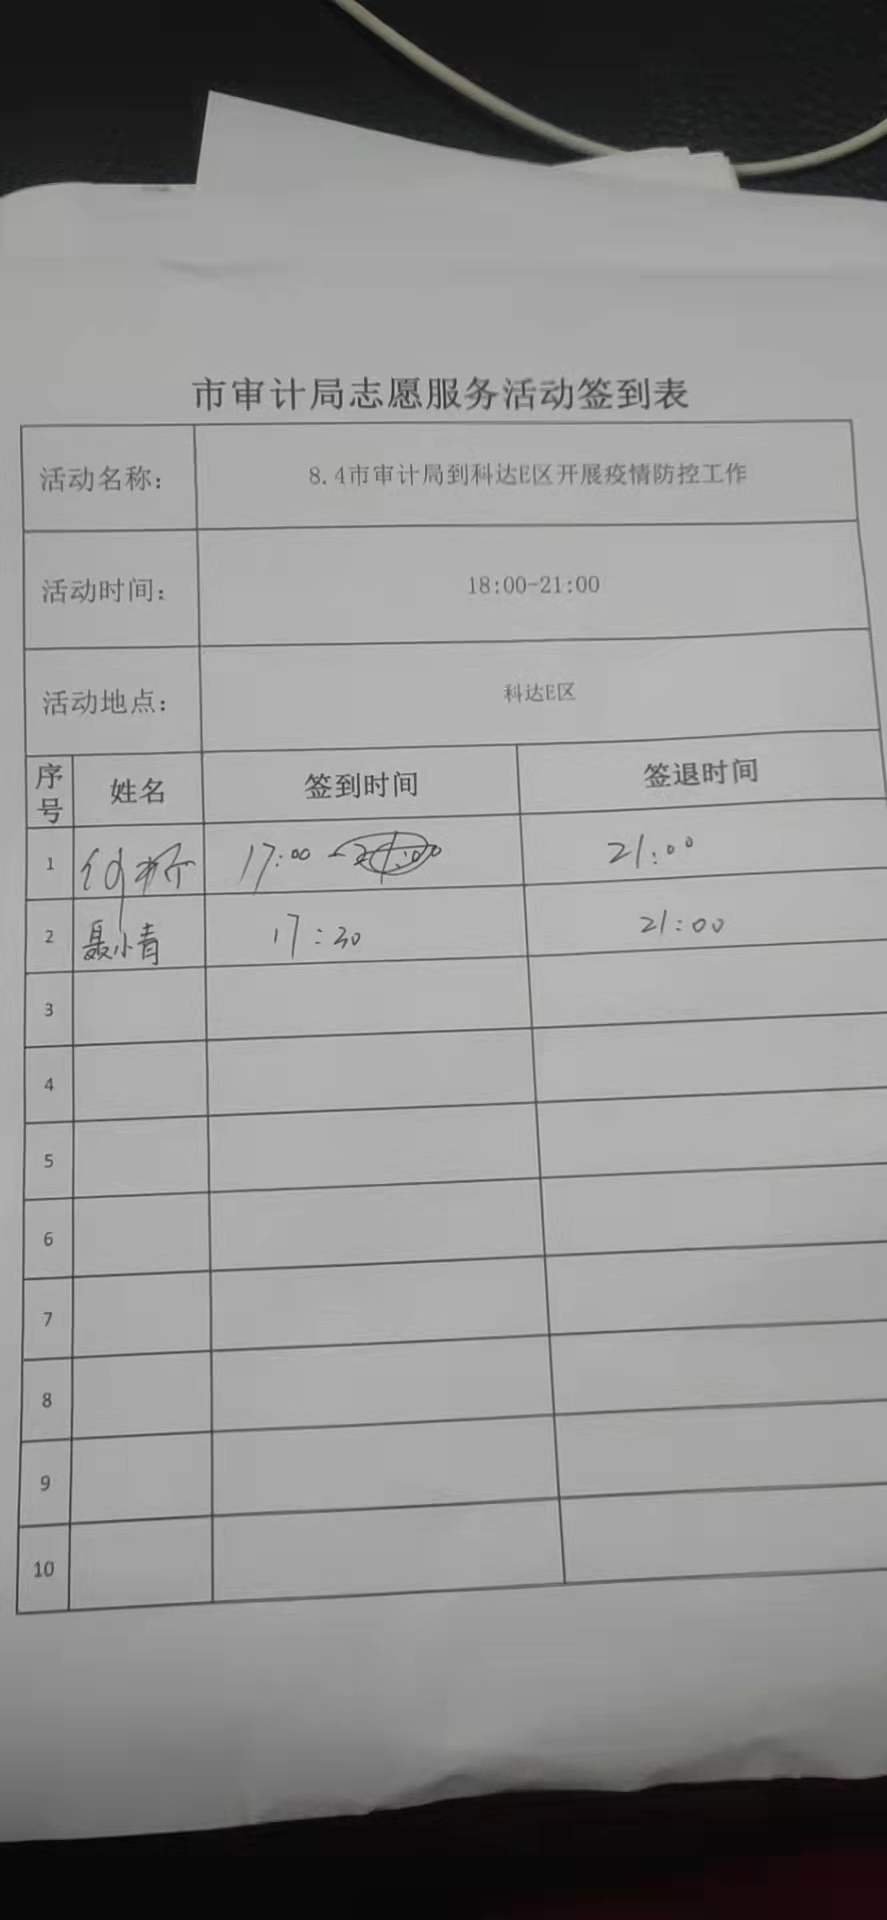 市审计局志愿服务活动签到表
活动名称： 8.4市审计局到科达E区开展疫情防控工作
活动时间： 18:00-21:00
活动地点： 科达E区
序号 姓名 签到时间 签退时间
1 17:00 21:00
2 聂小青 17:30 21:00
3
4
5
6
7
8
9
10